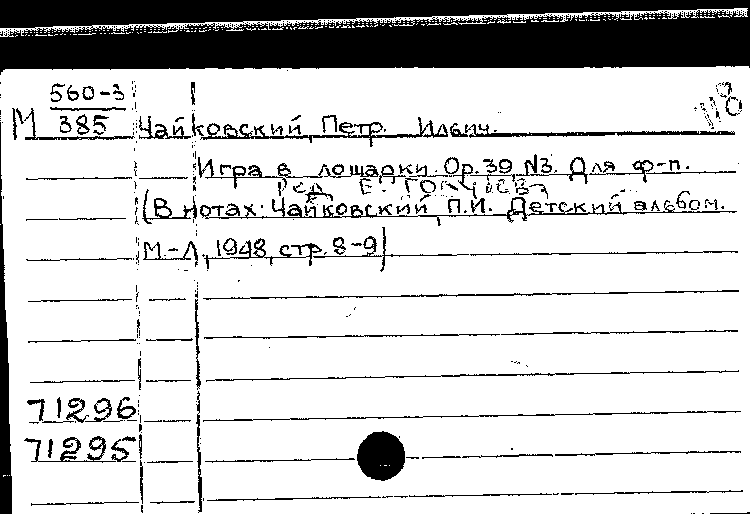 560-3
118
М 385 Чайковский, Петр Ильич.
Игра в лошадки. Ор.39, N3. Для ф-п.
Ред. Е.
(В нотах: Чайковский, П.И. Детский альбом.
М.-Л., 1948, стр. 8-9).
71296
71295